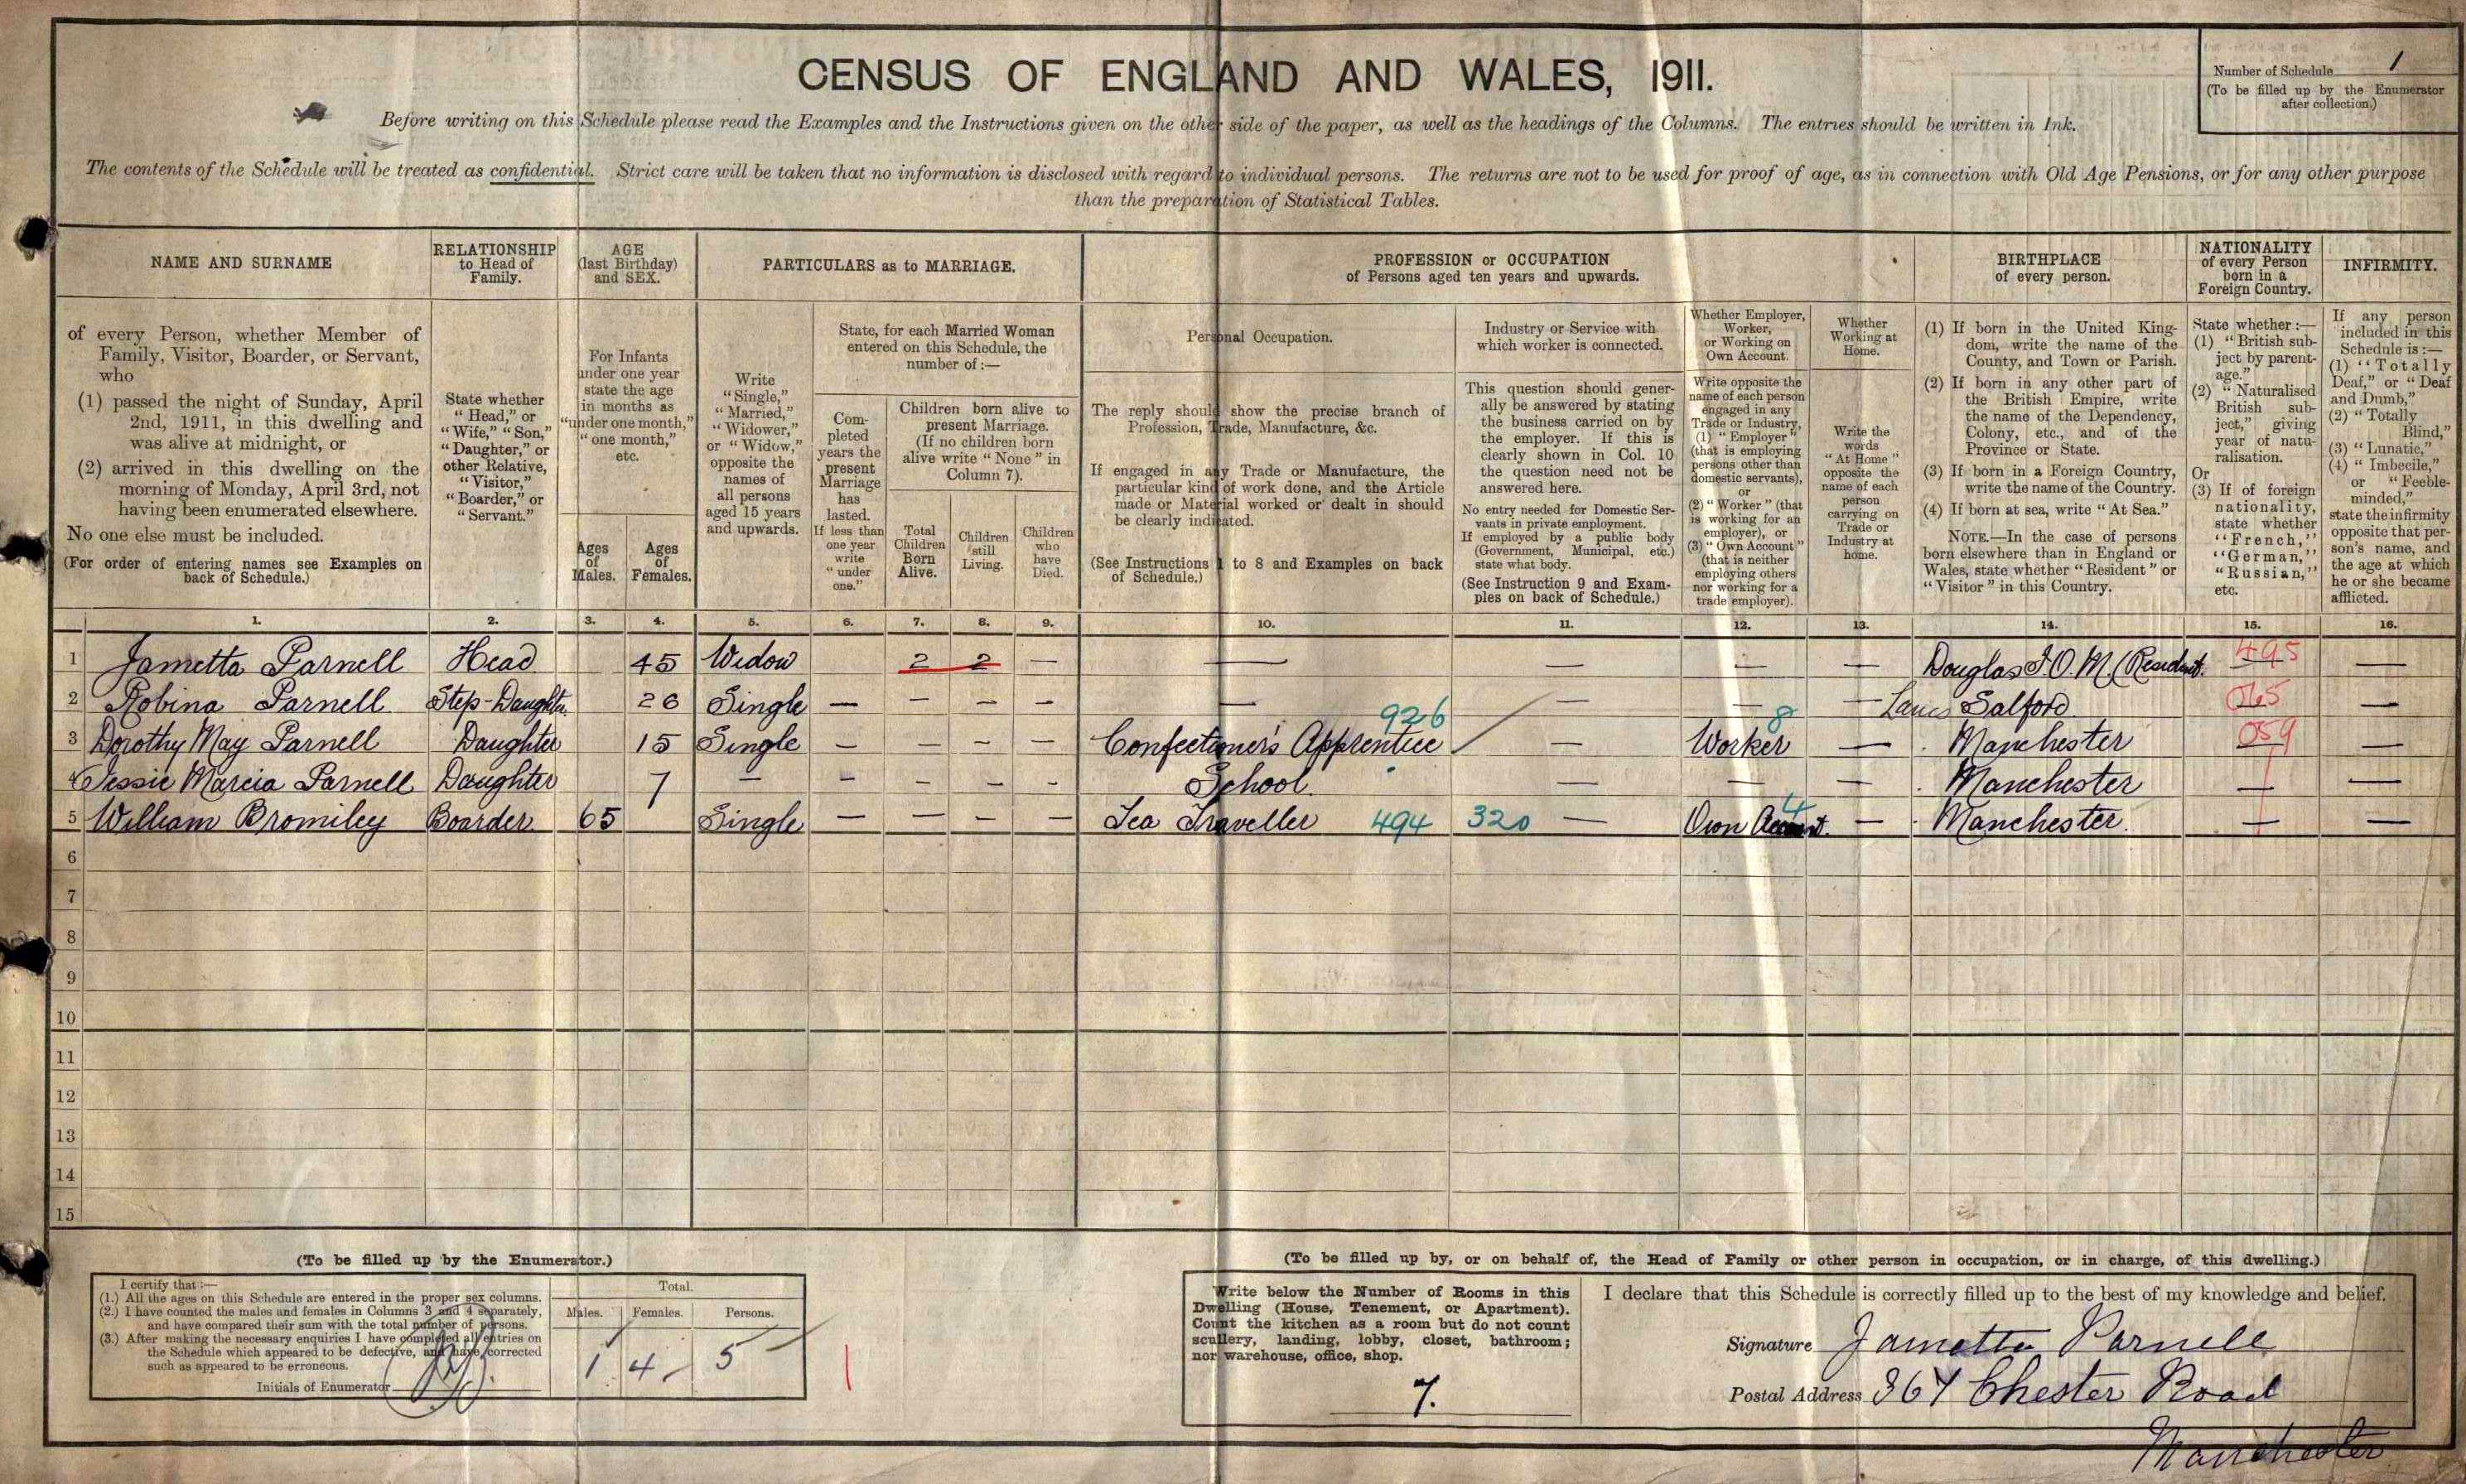 CENSUS OF ENGLAND AND WALES, 1911.
Number of Schedule 1
(To be filled up by the Enumerator
after collection.)
Before writing on this Schedule please read the Examples and the Instructions given on the other side of the paper, as well as the headings of the Columns. The entries should be written in Ink.
The contents of the Schedule will be treated as confidential. Strict care will be taken that no information is disclosed with regard to individual persons. The returns are not to be used for proof of age, as in connection with Old Age Pensions, or for any other purpose
than the preparation of Statistical Tables.
NAME AND SURNAME
of every Person, whether Member of
Family, Visitor, Boarder, or Servant,
who
(1) passed the night of Sunday, April
2nd, 1911, in this dwelling and
was alive at midnight, or
(2) arrived in this dwelling on the
morning of Monday, April 3rd, not
having been enumerated elsewhere.
No one else must be included.
(For order of entering names see Examples on
back of Schedule.)
RELATIONSHIP
to Head of
Family.
State whether
"Head," or
"Wife," "Son,"
"Daughter," or
other Relative,
"Visitor,"
"Boarder," or
"Servant."
AGE
(last Birthday)
and SEX.
For Infants
under one year
state the age
in months as
"under one month,"
"one month,"
etc.
Ages
of
Males.
Ages
of
Females.
PARTICULARS as to MARRIAGE.
Write
"Single,"
"Married,"
"Widower,"
or "Widow,"
opposite the
names of
all persons
aged 15 years
and upwards.
State, for each Married Woman
entered on this Schedule, the
number of :—
Com-
pleted
years the
present
Marriage
has
lasted.
If less than
one year
write
"under
one."
Children born alive to
present Marriage.
(If no children born
alive write "None" in
Column 7).
Total
Children
Born
Alive.
Children
still
Living.
Children
who
have
Died.
PROFESSION or OCCUPATION
of Persons aged ten years and upwards.
Personal Occupation.
The reply should show the precise branch of
Profession, Trade, Manufacture, &c.
If engaged in any Trade or Manufacture, the
particular kind of work done, and the Article
made or Material worked or dealt in should
be clearly indicated.
(See Instructions 1 to 8 and Examples on back
of Schedule.)
Industry or Service with
which worker is connected.
This question should gener-
ally be answered by stating
the business carried on by
the employer. If this is
clearly shown in Col. 10
the question need not be
answered here.
No entry needed for Domestic Ser-
vants in private employment.
If employed by a public body
(Government, Municipal, etc.)
state what body.
(See Instruction 9 and Exam-
ples on back of Schedule.)
Whether Employer,
Worker,
or Working on
Own Account.
Write opposite the
name of each person
engaged in any
Trade or Industry,
(1) "Employer"
(that is employing
persons other than
domestic servants),
or
(2) "Worker" (that
is working for an
employer), or
(3) "Own Account"
(that is neither
employing others
nor working for a
trade employer).
Whether
Working at
Home.
Write the
words
"At Home"
opposite the
name of each
person
carrying on
Trade or
Industry at
home.
BIRTHPLACE
of every person.
(1) If born in the United King-
dom, write the name of the
County, and Town or Parish.
(2) If born in any other part of
the British Empire, write
the name of the Dependency,
Colony, etc., and of the
Province or State.
(3) If born in a Foreign Country,
write the name of the Country.
(4) If born at sea, write "At Sea."
NOTE.—In the case of persons
born elsewhere than in England or
Wales, state whether "Resident" or
"Visitor" in this Country.
NATIONALITY
of every Person
born in a
Foreign Country.
State whether :—
(1) "British sub-
ject by parent-
age."
(2) "Naturalised
British sub-
ject," giving
year of natu-
ralisation.
Or
(3) If of foreign
nationality,
state whether
"French,"
"German,"
"Russian,"
etc.
INFIRMITY.
If any person
included in this
Schedule is :—
(1) "Totally
Deaf," or "Deaf
and Dumb,"
(2) "Totally
Blind,"
(3) "Lunatic,"
(4) "Imbecile,"
or "Feeble-
minded,"
state the infirmity
opposite that per-
son's name, and
the age at which
he or she became
afflicted.
1. 2. 3. 4. 5. 6. 7. 8. 9. 10. 11. 12. 13. 14. 15. 16.
1 Jametta Parnell Head 45 Widow 2 2 — — — — — Douglas I.O.M. (Resident. 495 —
2 Robina Parnell Step-Daughter 26 Single — — — — — — — — Lancs Salford 065 —
3 Dorothy May Parnell Daughter 15 Single — — — — Confectioner's Apprentice 926 — Worker 8 — Manchester 059 —
4 Jessie Marcia Parnell Daughter 7 — — — — — School — — — Manchester — —
5 William Bromiley Boarder 65 Single — — — — Tea Traveller 494 320 — Own Account. 4 — Manchester. — —
6
7
8
9
10
11
12
13
14
15
(To be filled up by the Enumerator.)
I certify that :—
(1.) All the ages on this Schedule are entered in the proper sex columns.
(2.) I have counted the males and females in Columns 3 and 4 separately,
and have compared their sum with the total number of persons.
(3.) After making the necessary enquiries I have completed all entries on
the Schedule which appeared to be defective, and have corrected
such as appeared to be erroneous.
Initials of Enumerator
Total.
Males. Females. Persons.
1 4 5
(To be filled up by, or on behalf of, the Head of Family or other person in occupation, or in charge, of this dwelling.)
Write below the Number of Rooms in this
Dwelling (House, Tenement, or Apartment).
Count the kitchen as a room but do not count
scullery, landing, lobby, closet, bathroom;
nor warehouse, office, shop.
7.
I declare that this Schedule is correctly filled up to the best of my knowledge and belief.
Signature Jametta Parnell
Postal Address 367 Chester Road
Manchester